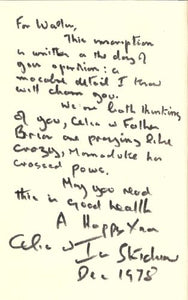 For Walter,
This inscription
is written on the day of
your operation: a
macabre detail I know
will charm you.
We are both thinking
of you, Celia & Father
Brian are praying like
crazy, Marmaduke has
crossed paws.
May you read
this in good health
A Happy Xmas
Celia & Ian
Dec 1978